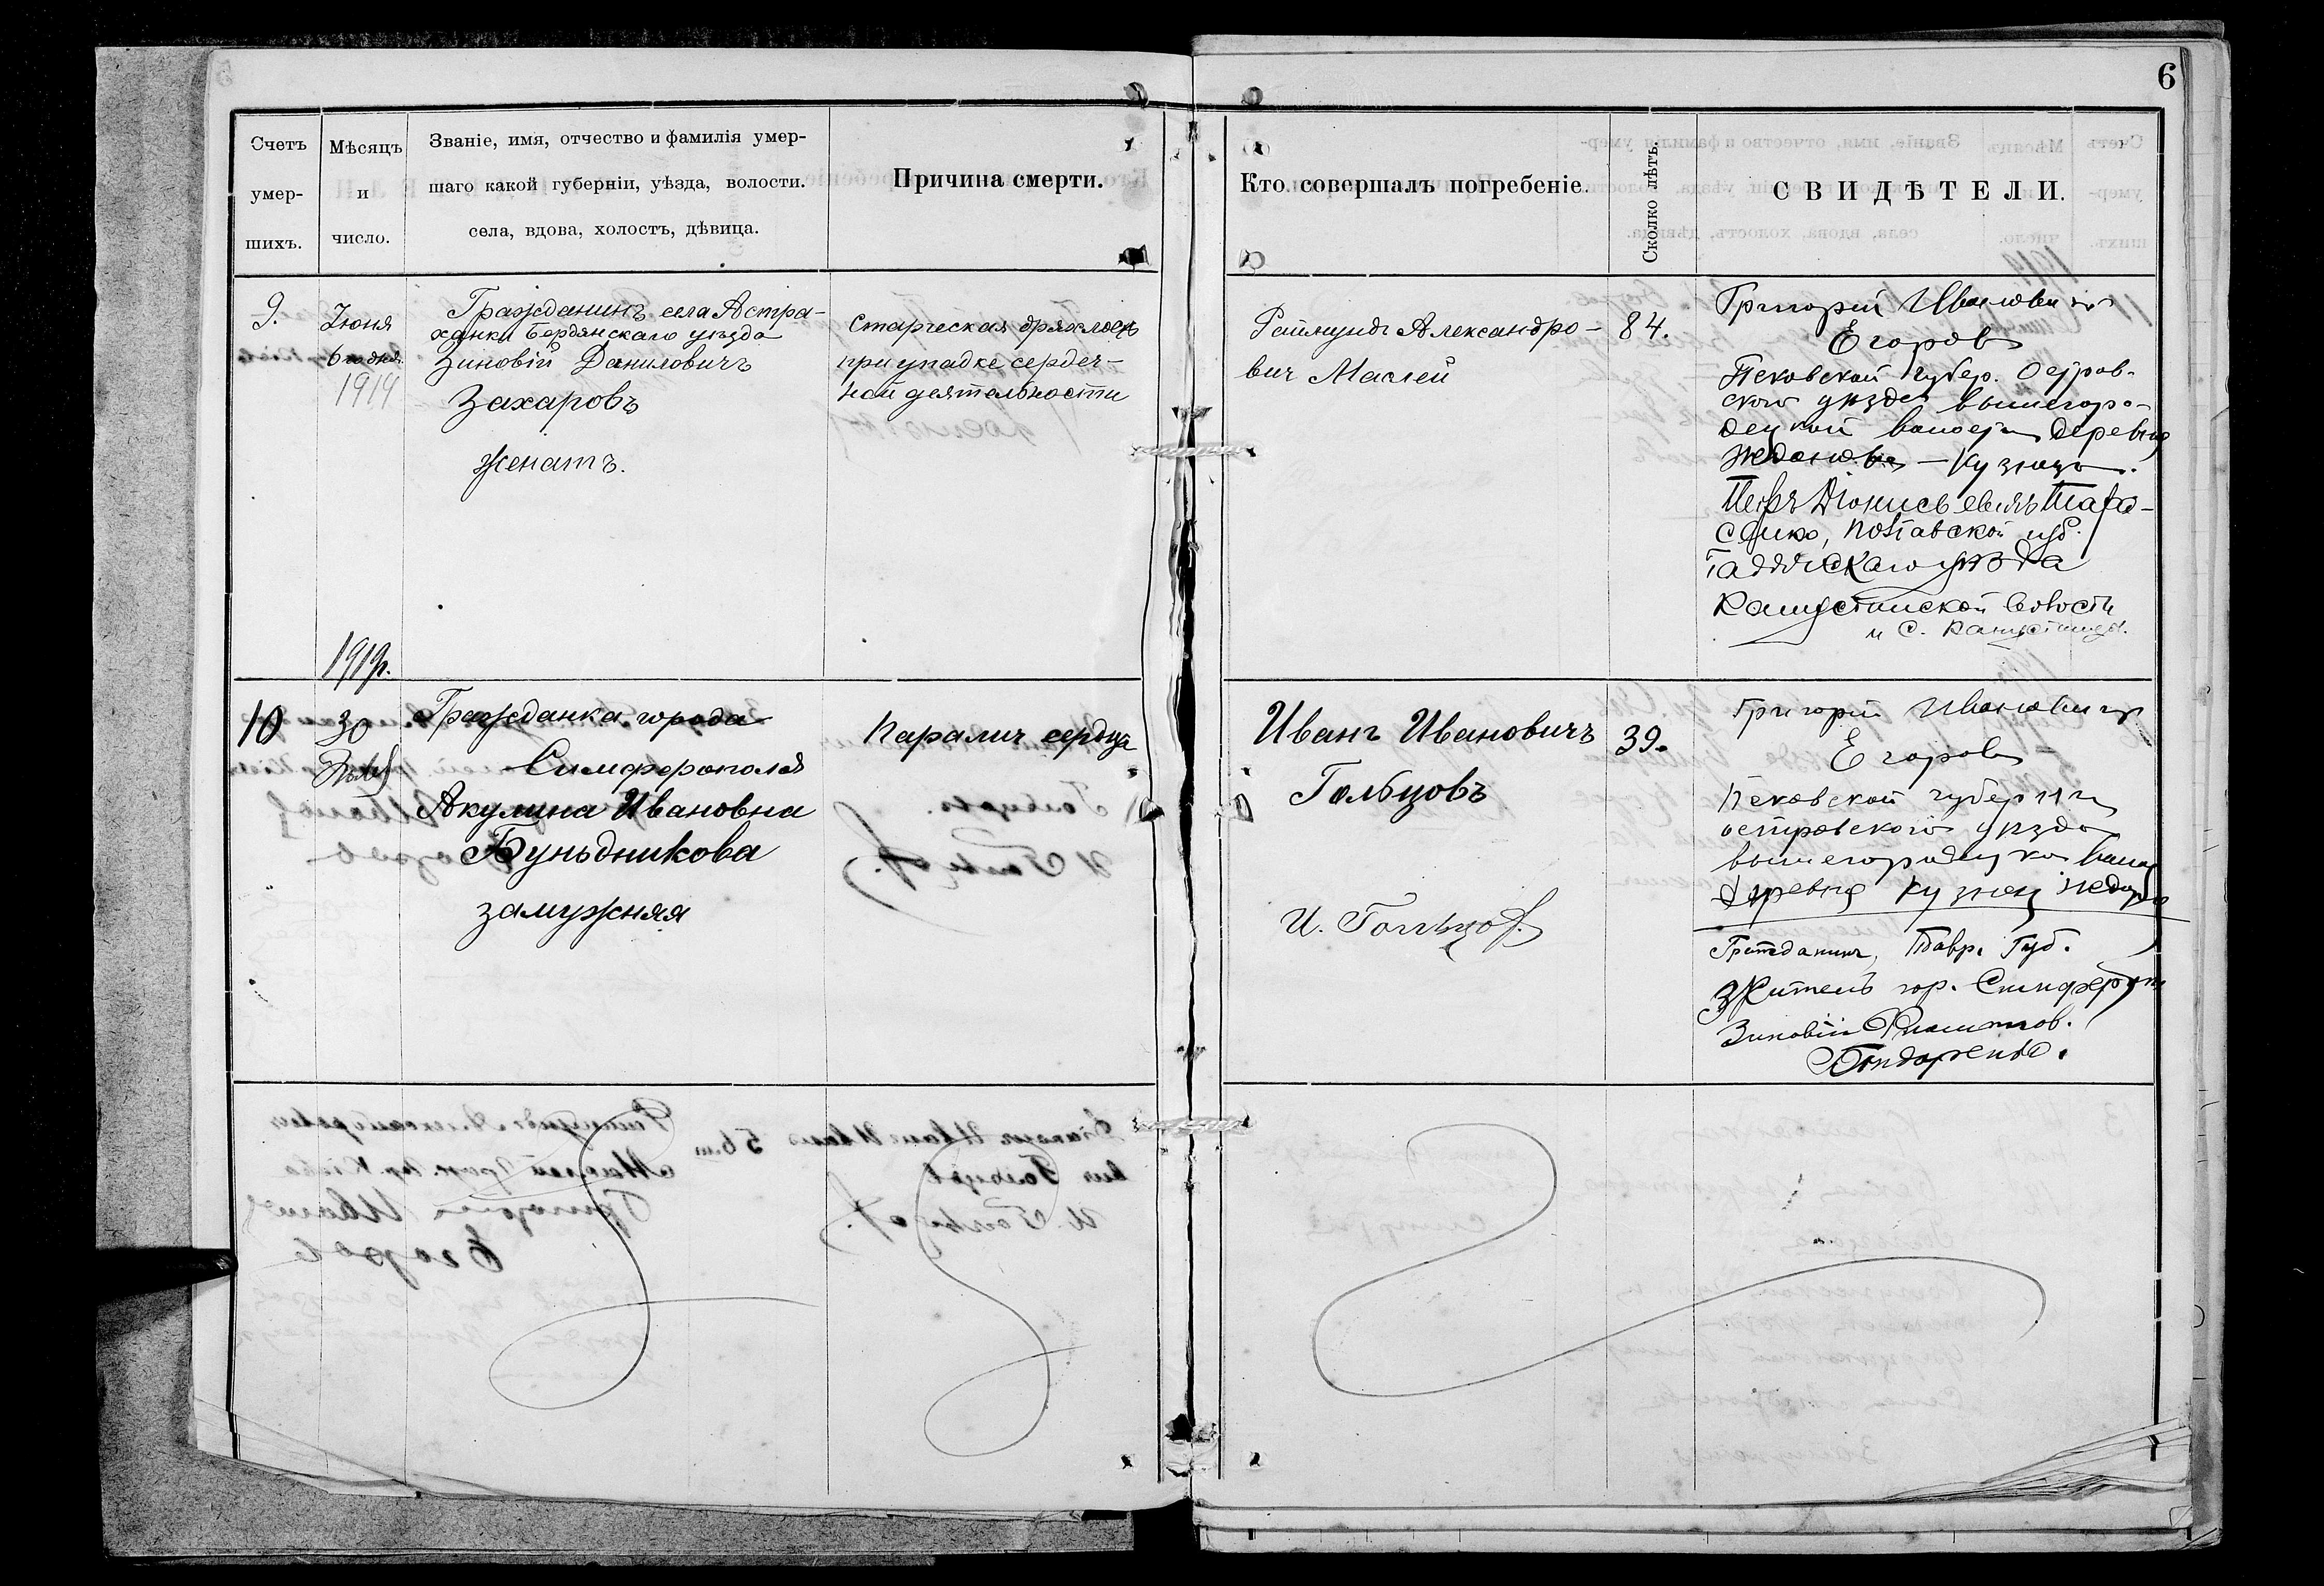 6
Счетъ
умер-
шихъ.
Мѣсяцъ
и
число.
Званіе, имя, отчество и фамилія умер-
шаго какой губерніи, уѣзда, волости.
села, вдова, холостъ, дѣвица.
Причина смерти.
Кто совершалъ погребеніе.
Сколко лѣтъ.
СВИДѢТЕЛИ.
9.
Іюня
6го дня
1919
Гражданинъ села Астра-
ханки Бердянскаго уѣзда
Зиновій Даниловичъ
Захаровъ
женатъ.
Старческая дряхлость
при упадке сердеч-
ной деятельности
Раймундъ Александро-
вич Маслей
84.
Григорий Иванович
Егоров
Псковской губер. Остров-
ского уѣзда вышегоро-
децкой волости деревня
Петръ Діонисьевичъ Тара-
сенко, Полтавской губ.
Гадячскаго уѣзда
Капустинской волости
и с. Капустинцы.
1919г.
10
30
Гражданка города
Симферополя
Акулина Ивановна
замужняя
Паралич сердца
Иванъ Ивановичъ
Гольцовъ
И. Гольцов.
39.
Григорий Иванович
Егоров
Псковской губернии
островского уѣзда
деревня Кузнец
Гражданин, Тавр. Губ.
Житель гор. Симфероп
Зиновій Филиппов.
Бондаренко.